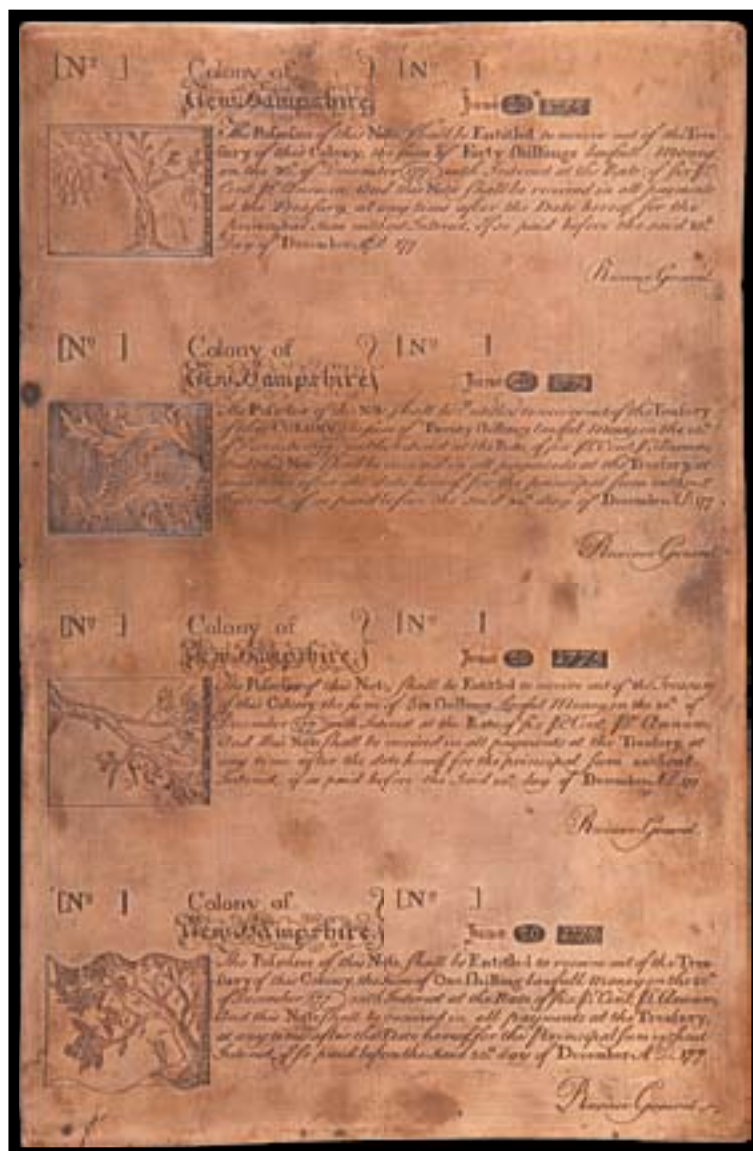 [Nº ] Colony of [Nº ]
New Hampshire June 20 1775
The Possessor of this Note, shall be Entitled to receive out of the Trea-
sury of this Colony, the sum of Forty Shillings lawfull Money
on the 20th of December 177 with Interest at the Rate of six Pr
Cent. Pr Annum. And this Note shall be received in all payments
at the Treasury, at any time after the Date hereof for the
principal sum without Interest, if so paid before the said 20th
Day of December, A.D. 177
Receiver General
[Nº ] Colony of [Nº ]
New Hampshire June 20 1775
The Possessor of this Note shall be entitled to receive out of the Treasury
of this Colony, the sum of Twenty Shillings lawful Money on the 20th
of December 177 with Interest at the Rate of six Pr Cent. Pr Annum,
And this Note shall be received in all payments at the Treasury, at
any time after the date hereof for the principal sum without
Interest, if so paid before the said 20th day of December A.D. 177
Receiver General
[Nº ] Colony of [Nº ]
New Hampshire June 20 1775
The Possessor of this Note, shall be Entitled to receive out of the Treasury
of this Colony the sum of Six Shillings Lawful Money on the 20th of
December 177 with Interest at the Rate of six Pr Cent, Pr Annum,
And this Note shall be received in all payments at the Treasury, at
any time after the date hereof for the principal sum without
Interest, if so paid before the said 20th day of December A.D. 177
Receiver General
[Nº ] Colony of [Nº ]
New Hampshire June 20 1775
The Possessor of this Note shall be Entitled to receive out of the Trea-
sury of this Colony, the sum of One Shilling lawfull Money on the 20th
of December 177 with Interest at the Rate of six Pr Cent. Pr Annum,
And this Note shall be received in all payments at the Treasury,
at any time after the Date hereof for the Principal sum without
Interest, if so paid before the said 20th day of December A.D. 177
Receiver General